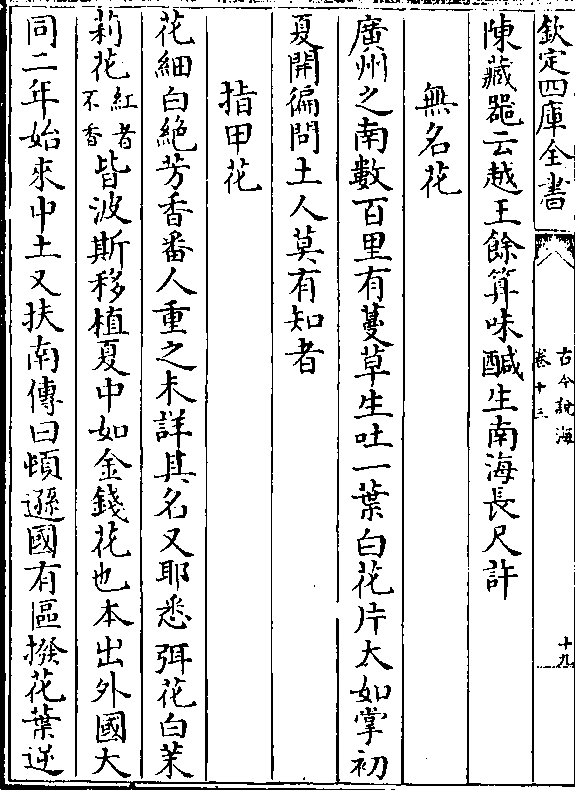 欽定四庫全書
古今說海
卷十三
十九
陳藏器云越王餘算味鹹生南海長尺許
無名花
廣州之南數百里有蔓草生吐一葉白花片大如掌初
夏開徧問土人莫有知者
指甲花
花細白絶芳香番人重之未詳其名又耶悉弭花白茉
莉花紅者不香皆波斯移植夏中如金錢花也本出外國大
同二年始來中土又扶南傳曰頓遜國有區撥花葉逆